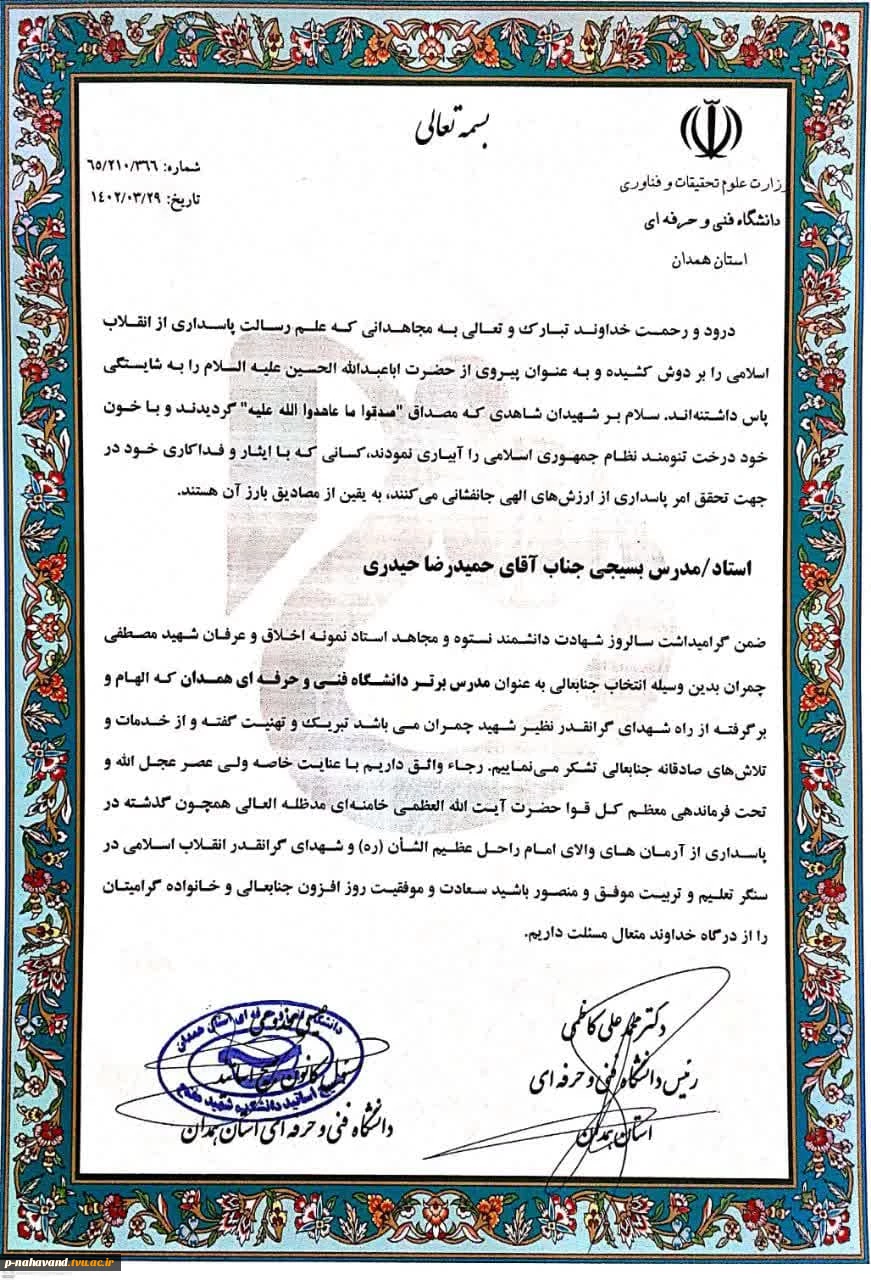 بسمه تعالی
وزارت علوم تحقیقات و فناوری
دانشگاه فنی و حرفه ای
استان همدان
شماره: ۶۵/۲۱۰/۳۶۶
تاریخ: ۱۴۰۲/۰۳/۲۹
درود و رحمت خداوند تبارک و تعالی به مجاهدانی که علم رسالت پاسداری از انقلاب
اسلامی را بر دوش کشیده و به عنوان پیروی از حضرت اباعبدالله الحسین علیه السلام را به شایستگی
پاس داشته‌اند. سلام بر شهیدان شاهدی که مصداق "صدقوا ما عاهدوا الله علیه" گردیدند و با خون
خود درخت تنومند نظام جمهوری اسلامی را آبیاری نمودند،کسانی که با ایثار و فداکاری خود در
جهت تحقق امر پاسداری از ارزش‌های الهی جانفشانی می‌کنند، به یقین از مصادیق بارز آن هستند.
استاد/مدرس بسیجی جناب آقای حمیدرضا حیدری
ضمن گرامیداشت سالروز شهادت دانشمند نستوه و مجاهد استاد نمونه اخلاق و عرفان شهید مصطفی
چمران بدین وسیله انتخاب جنابعالی به عنوان مدرس برتر دانشگاه فنی و حرفه ای همدان که الهام و
برگرفته از راه شهدای گرانقدر نظیر شهید چمران می باشد تبریک و تهنیت گفته و از خدمات و
تلاش‌های صادقانه جنابعالی تشکر می‌نماییم. رجاء واثق داریم با عنایت خاصه ولی عصر عجل الله و
تحت فرماندهی معظم کل قوا حضرت آیت الله العظمی خامنه‌ای مدظله العالی همچون گذشته در
پاسداری از آرمان های والای امام راحل عظیم الشأن (ره) و شهدای گرانقدر انقلاب اسلامی در
سنگر تعلیم و تربیت موفق و منصور باشید سعادت و موفقیت روز افزون جنابعالی و خانواده گرامیتان
را از درگاه خداوند متعال مسئلت داریم.
دکتر محمد علی کاظمی
رئیس دانشگاه فنی و حرفه ای
استان همدان
کانون بسیج اساتید
دانشگاه فنی و حرفه ای استان همدان
p-nahavand.tvu.ac.ir